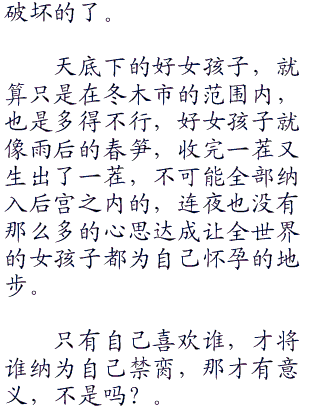 破坏的了。
天底下的好女孩子，就
算只是在冬木市的范围内，
也是多得不行，好女孩子就
像雨后的春笋，收完一茬又
生出了一茬，不可能全部纳
入后宫之内的，连夜也没有
那么多的心思达成让全世界
的女孩子都为自己怀孕的地
步。
只有自己喜欢谁，才将
谁纳为自己禁脔，那才有意
义，不是吗？。